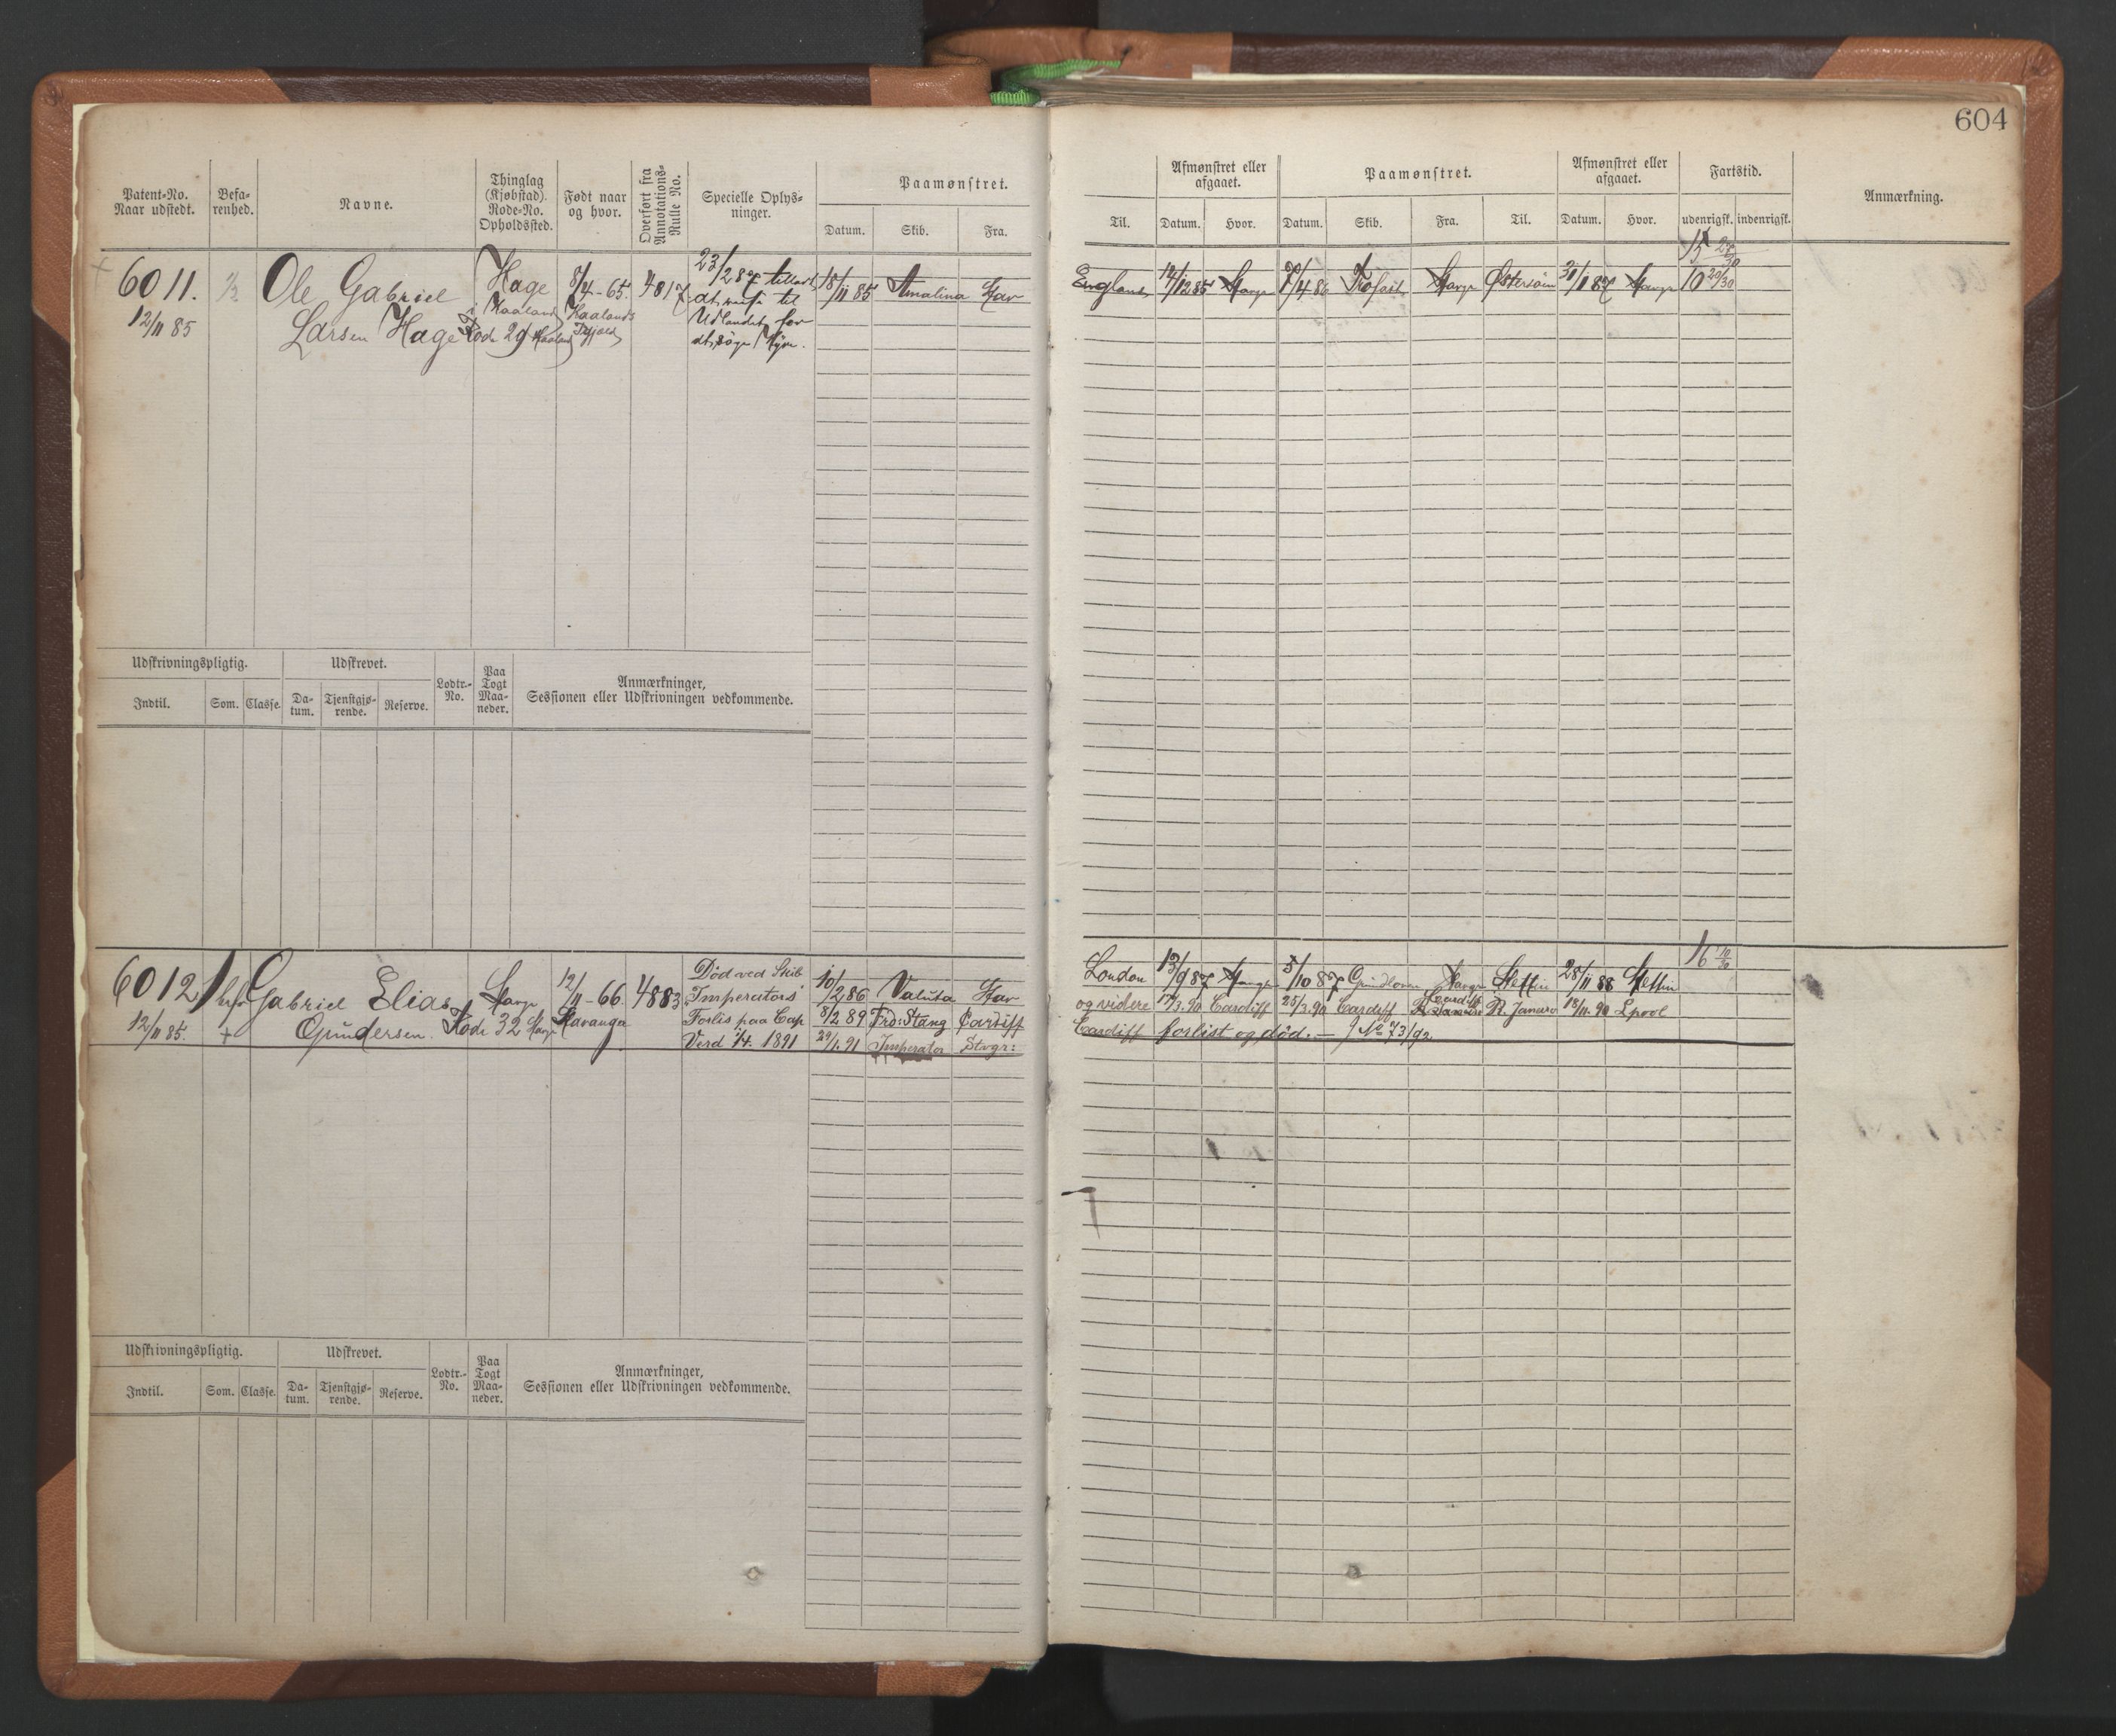 604
Patent-No. Naar udstedt.
Befa-renhed.
Navne.
Thinglag (Kjøbstad). Rode-No. Opholdssted.
Født naar og hvor.
Overført fra Annotations-Rulle No.
Specielle Oplys-ninger.
Paamønstret.
Datum. Skib. Fra.
Til.
Afmønstret eller afgaaet.
Datum. Hvor.
Paamønstret.
Datum. Skib. Fra. Til.
Afmønstret eller afgaaet.
Datum. Hvor.
Fartstid.
udenrigsk. indenrigsk.
Anmærkning.
6011.
12/11 85
Ole Gabriel
Larsen Hage
Hage
i Haaland
Rode 29 Haaland
8/4-65.
Haalands
4817
23/2 87 tilladt
at reise til
Udlandet for
at søge Hyre.
18/11 85 Amalina Stav
England 14/12 85 Stavgr 7/4 86 Stavgr Østersøen 31/1 87 Stavgr 10 20/30
Udskrivningspligtig.
Indtil. Som. Classe.
Udskrevet.
Da-tum. Tjenstgjø-rende. Reserve.
Lodtr.-No.
Paa Togt Maa-neder.
Anmærkninger,
Sessionen eller Udskrivningen vedkommende.
6012
12/11 85.
Gabriel Elias
Gundersen.
Stavgr
Rode 32 Stavgr
12/11-66.
Stavanger
4883
Død ved Skib
Imperators
Forlis paa Cap
Verd 1/4. 1891
10/2 86 Valuta Stav
8/2 89 Frd: Stang Cardiff
29/1. 91 Imperator Stvgr:
London 13/9 87 Stavgr 5/10 87 Stavgr Stettin 28/11 88 Stettin 16 10/30
og videre 17/3.90 Cardiff 25/3.90 Cardiff R. Janeiro 18/11.90 Lpool
Cardiff forlist og død. — J No 73/92
Udskrivningspligtig.
Indtil. Som. Classe.
Udskrevet.
Da-tum. Tjenstgjø-rende. Reserve.
Lodtr.-No.
Paa Togt Maa-neder.
Anmærkninger,
Sessionen eller Udskrivningen vedkommende.